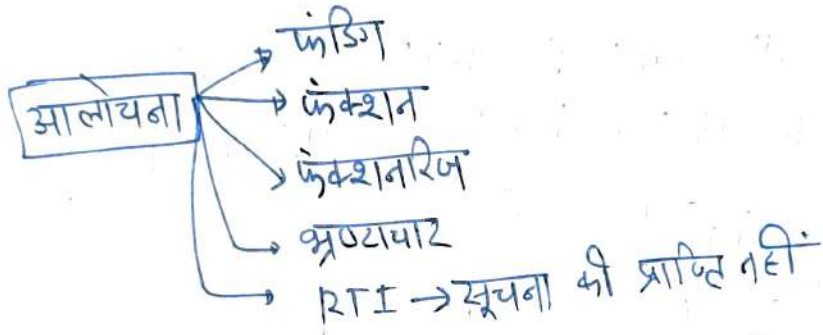 फंडिंग
आलोचना
फंक्शन
फंक्शनरिज
भ्रष्टाचार
RTI → सूचना की प्राप्ति नहीं